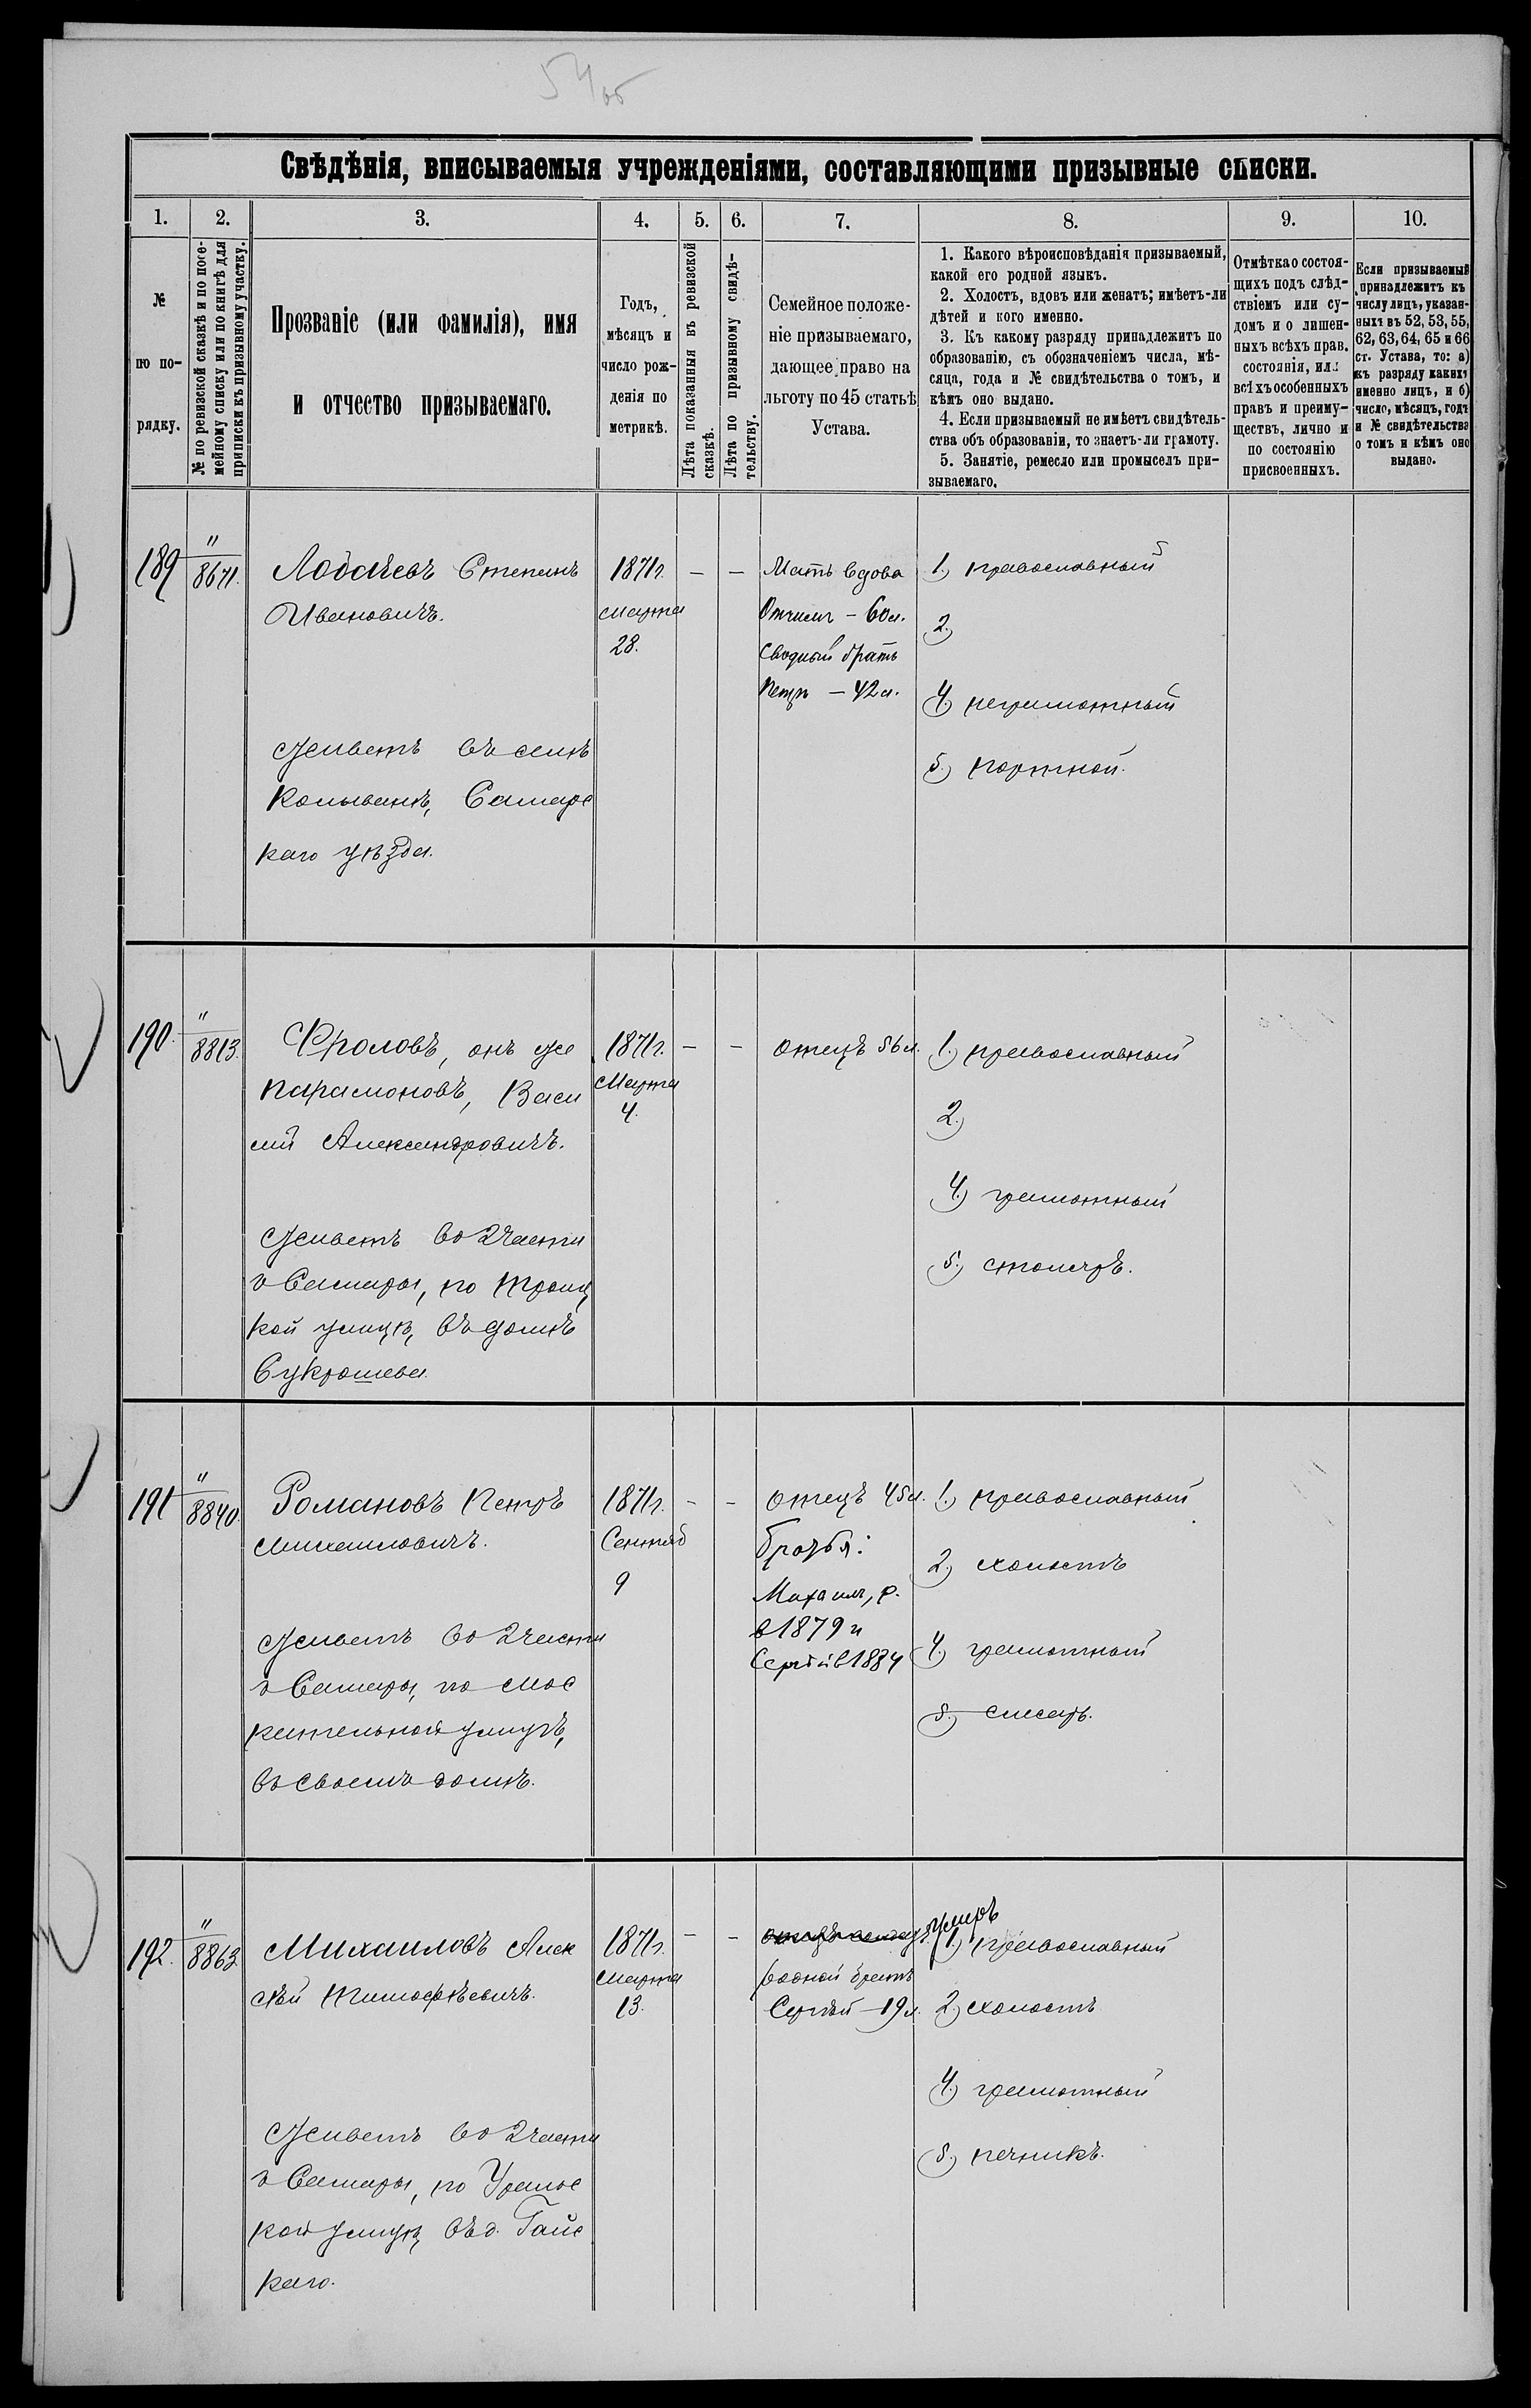 54об
Свѣдѣнія, вписываемыя учрежденіями, составляющими призывные списки.
1. 2. 3. 4. 5. 6. 7. 8. 9. 10.
№ по по-
рядку.
№ по ревизской сказкѣ и по посе-
мейному списку или по книгѣ для
приписки къ призывному участку.
Прозваніе (или фамилія), имя
и отчество призываемаго.
Годъ,
мѣсяцъ и
число рож-
денія по
метрикѣ.
Лѣта показанныя въ ревизской
сказкѣ.
Лѣта по призывному свидѣ-
тельству.
Семейное положе-
ніе призываемаго,
дающее право на
льготу по 45 статьѣ
Устава.
1. Какого вѣроисповѣданія призываемый,
какой его родной языкъ.
2. Холостъ, вдовъ или женатъ; имѣетъ-ли
дѣтей и кого именно.
3. Къ какому разряду принадлежитъ по
образованію, съ обозначеніемъ числа, мѣ-
сяца, года и № свидѣтельства о томъ, и
кѣмъ оно выдано.
4. Если призываемый не имѣетъ свидѣтель-
ства объ образованіи, то знаетъ-ли грамоту.
5. Занятіе, ремесло или промыселъ при-
зываемаго.
Отмѣтка о состоя-
щихъ подъ слѣд-
ствіемъ или су-
домъ и о лишен-
ныхъ всѣхъ прав.
состоянія, или
всѣхъ особенныхъ
правъ и преиму-
ществъ, лично и
по состоянію
присвоенныхъ.
Если призываемый
принадлежитъ къ
числу лицъ, указан-
ныхъ въ 52, 53, 55,
62, 63, 64, 65 и 66
ст. Устава, то: а)
къ разряду какихъ
именно лицъ, и б)
число, мѣсяцъ, годъ
и № свидѣтельства
о томъ и кѣмъ оно
выдано.
189
"
8671.
Лобачевъ Степанъ
Ивановичъ.
Живетъ въ селѣ
Колыванѣ, Самарс
каго уѣзда.
1871г.
марта
28.
—
—
Мать вдова
Отчимъ – 60л.
Сводный братъ
Петръ – 42л.
1.) православный
2.)
4.) неграмотный
5.) портной.
190.
"
8813.
Фроловъ, онъ же
Парамоновъ, Васи
лій Александровичъ.
Живетъ во 2 части
г Самары, по Троиц
кой улицѣ, въ домѣ
Сукрошева.
1871г.
Марта
4.
—
—
отецъ 56л.
1.) православный
2.)
4.) грамотный
5.) столяръ.
191
"
8840.
Романовъ Петръ
Михаиловичъ.
Живетъ во 2 части
г Самары, по Мос
кательной улицѣ,
въ своемъ домѣ.
1871г.
Сентяб
9
-
-
отецъ 45л.
братья:
Михаилъ, р.
в 1879 и
Сергѣй в 1884
1.) православный
2.) холостъ
4.) грамотный
5.) слесарь.
192.
"
8863.
Михаиловъ Алек
сѣй Тимофѣевичъ.
Живетъ во 2 части
г Самары, по Уральс
кой улицѣ въ д. Гайс
каго.
1871г.
марта
13.
-
-
отецъ умеръ
родной братъ
Сергѣй – 19л.
1.) православный
2.) холостъ
4.) грамотный
5.) печникъ.